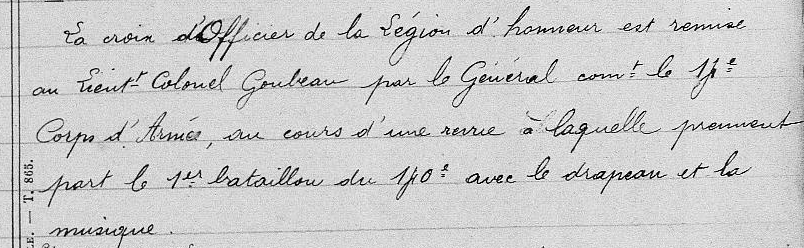 La croix d'Officier de la Légion d'honneur est remise
au Lieut^t Colonel Goubeau par le Général com^t le 14^e
Corps d'Armée, au cours d'une revue à laquelle prennent
part le 1^er bataillon du 140^e avec le drapeau et la
musique.
LE. — T. 865.